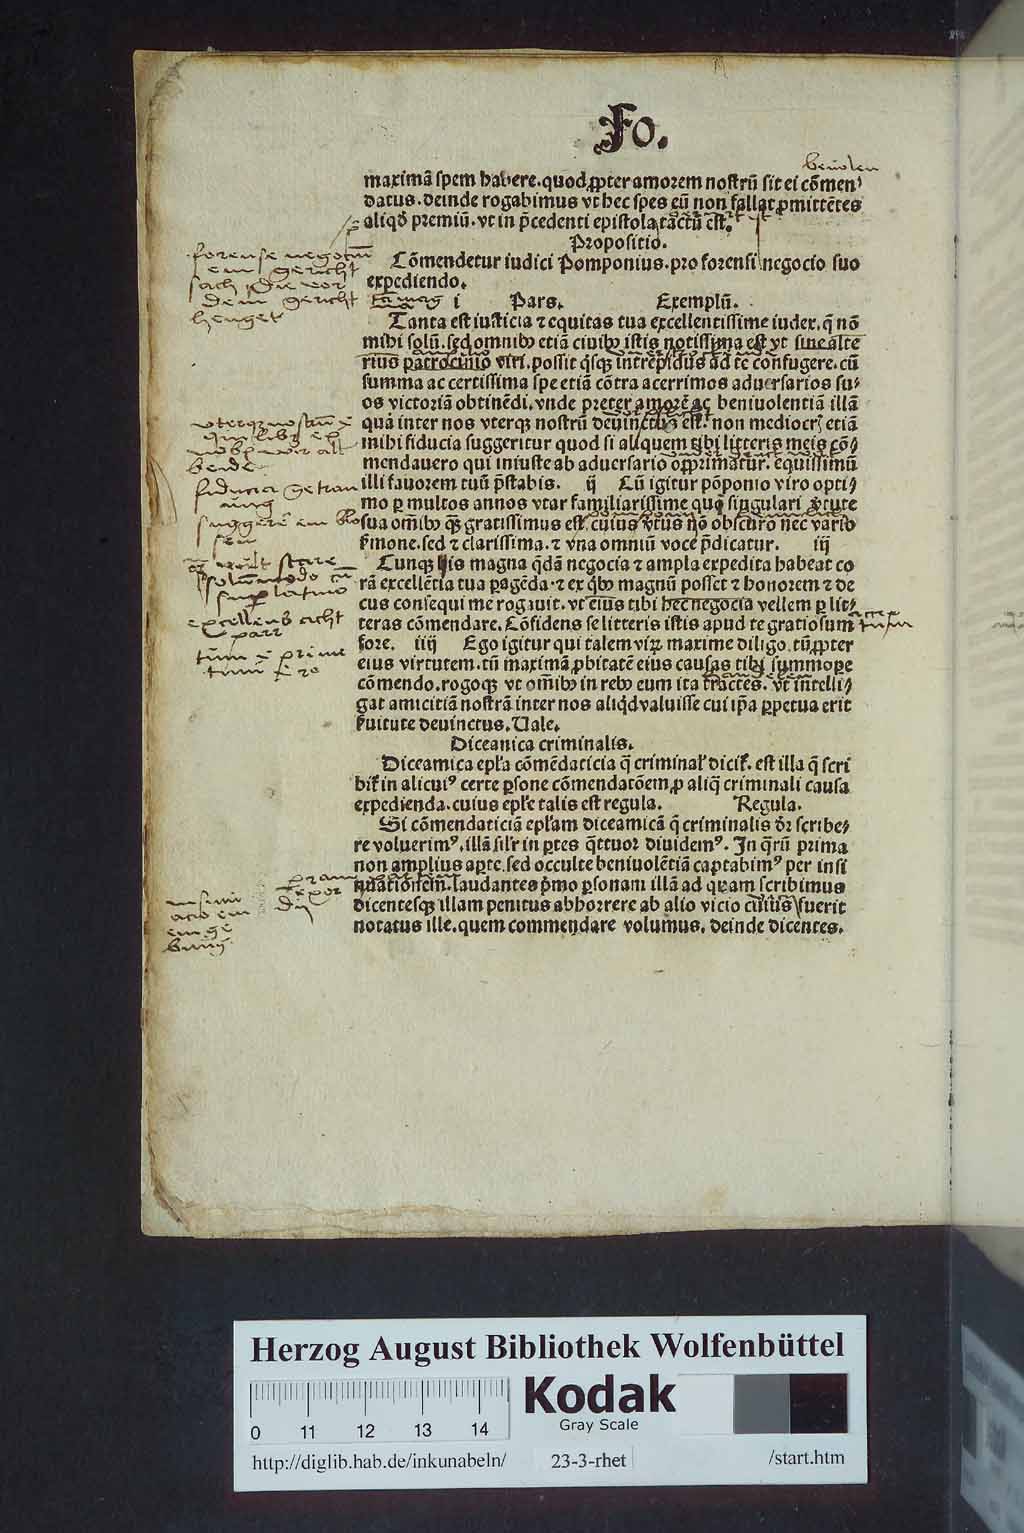 Fo.
maximã spem habere. quod ꝓpter amorem nostrũ sit ei cõmen
datus. deinde rogabimus vt hec spes eũ non fallat ꝓmittẽtes
aliqđ premiũ. vt in p̃cedenti epistola tactũ est.
Propositio.
Cõmendetur iudici Pomponius. pro forensi negocio suo
expediendo.
i Pars. Exemplũ.
Tanta est iusticia ⁊ equitas tua excellentissime iudex. q̃ nõ
mihi solũ. sed omnibꝫ etiã ciuibꝫ istis notissima est vt sine alte
rius patrocinio viri. possit q̃sqꝫ intrepidus ad te confugere. cũ
summa ac certissima spe etiã cõtra acerrimos aduersarios su⸗
os victoriã obtinẽdi. vnde preter amorẽ ac beniuolentiã illã
quã inter nos vterqꝫ nostrũ deuinctus est. non mediocrꝭ etiã
mihi fiducia suggeritur quod si aliquem tibi litteris meis cõ⸗
mendauero qui iniuste ab aduersario opprimatur. equissimũ
illi fauorem tuũ p̃stabis. ij Cũ igitur põponio viro opti⸗
mo ꝑ multos annos vtar familiarissime quẽ singulari v̓tute
sua om̃ibꝫ q̃ꝫ gratissimus est. cuius v̓tus nõ obscuro nec vario
ẜmone. sed ⁊ clarissima. ⁊ vna omniũ voce p̃dicatur. iij
Cunqꝫ his magna q̃dã negocia ⁊ ampla expedita habeat co
rã excellẽtia tua ꝑagẽda. ⁊ ex q̃bꝫ magnũ posset ⁊ honorem ⁊ de
cus consequi me rogauit. vt eius tibi hec negocia vellem ꝑ lit⸗
teras cõmendare. Cõfidens se litteris istis apud te gratiosum
fore. iiij Ego igitur qui talem virꝝ maxime diligo. tũ ꝓpter
eius virtutem. tũ maximã ꝓbitatẽ eius causas tibi summope
cõmendo. rogoqꝫ vt om̃ibꝫ in rebꝫ eum ita tractes. vt intelli⸗
gat amicitiã nostrã inter nos aliq̃d valuisse cui ip̃a ꝑpetua erit
ẜuitute deuinctus. Uale.
Diceanica criminalis.
Diceamica ep̃la cõmẽdaticia q̃ criminaƚ dicit̃. est illa q̃ scri
bit̃ in alicuiꝰ certe ꝑsone cõmendatõem ꝓ aliq̃ criminali causa
expedienda. cuius ep̃le talis est regula. Regula.
Si cõmendaticiã ep̃lam diceamicã q̃ criminalis dr̃ scribe⸗
re voluerimꝰ. illã sil̃r in ꝑtes q̃ttuor diuidemꝰ. In q̃rũ prima
non amplius aꝑte. sed occulte beniuolẽtiã captabimꝰ per insi
nuationem. laudantes p̃mo ꝑsonam illã ad quam scribimus
dicentesqꝫ illam penitus abhorrere ab alio vicio cuius fuerit
notatus ille. quem commendare volumus. deinde dicentes.
forense negotiũ
ein gericht
sach die vor
dem gericht
henget
fiducia getrau
ung
Herzog August Bibliothek Wolfenbüttel
0 11 12 13 14
Kodak
Gray Scale
http://diglib.hab.de/inkunabeln/ 23-3-rhet /start.htm